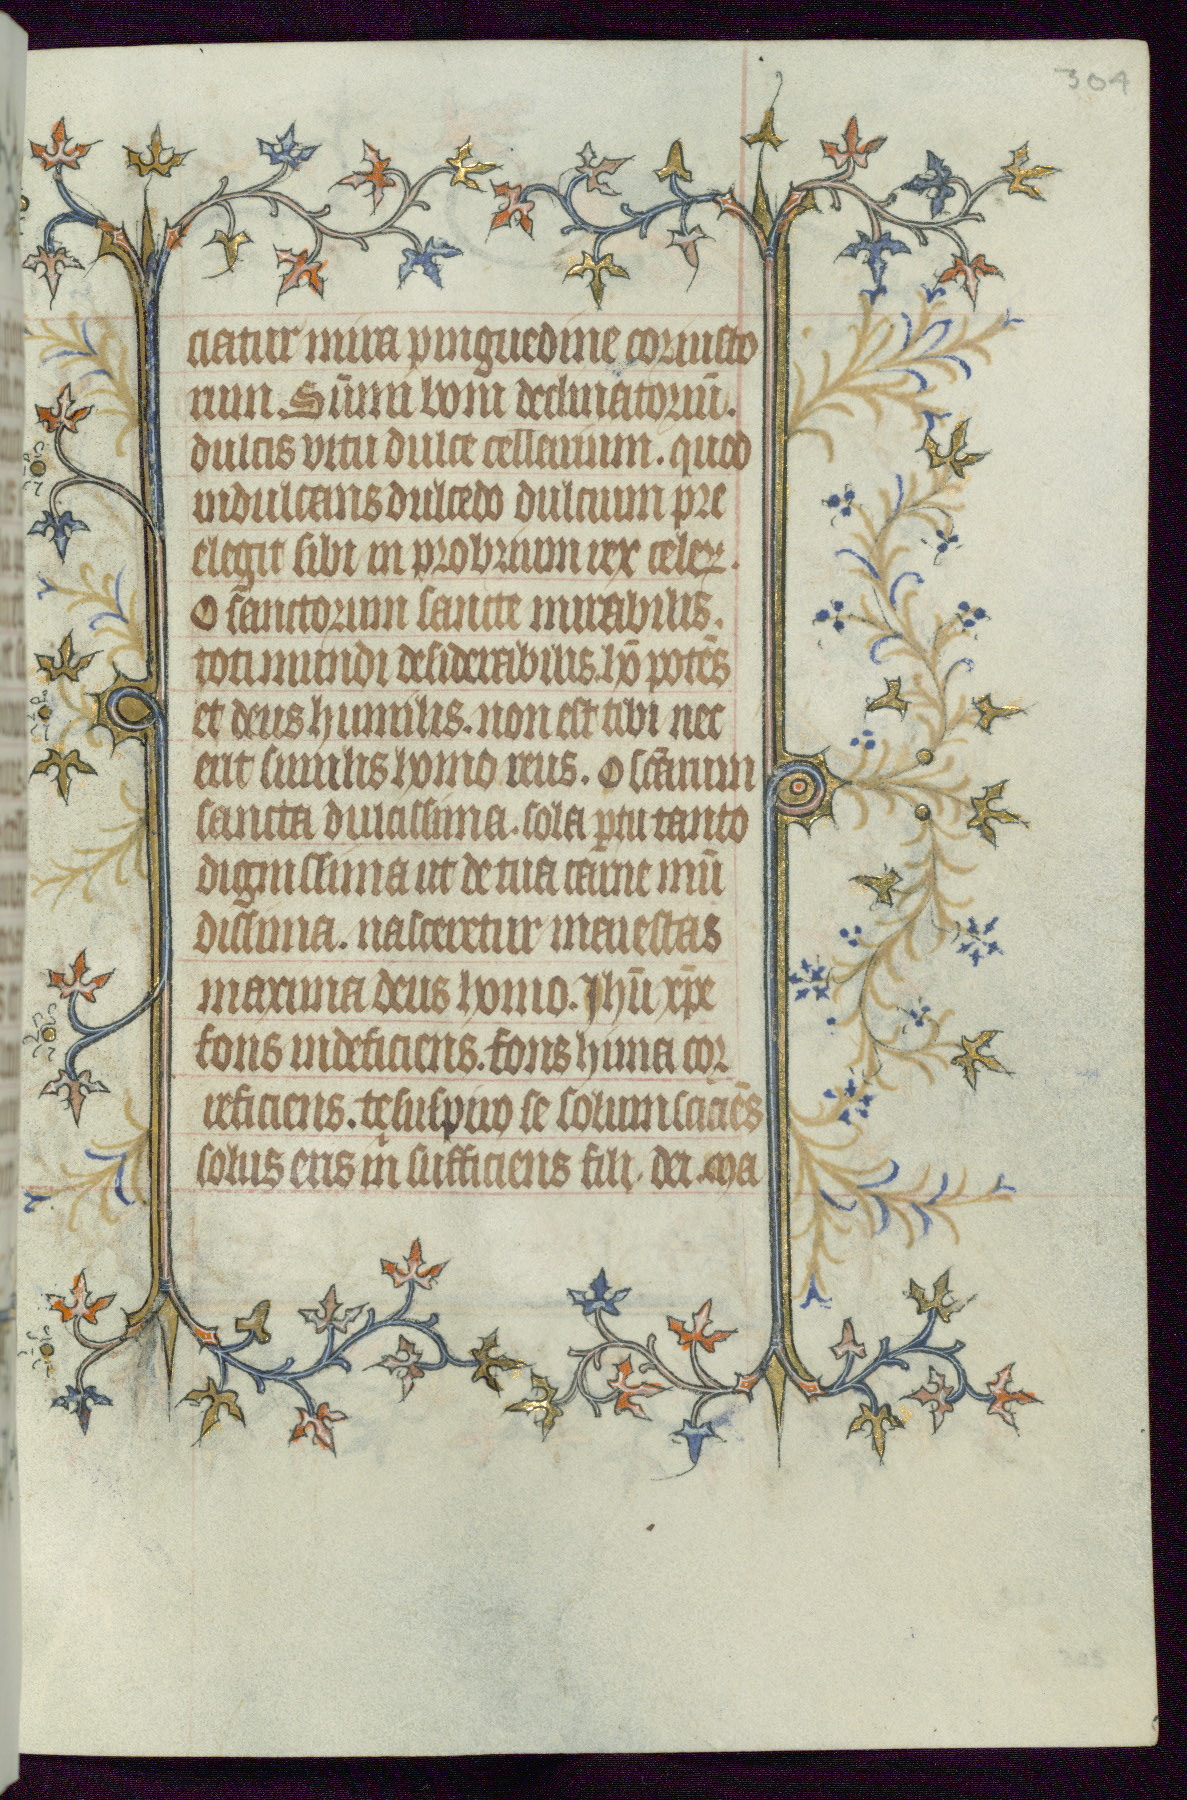 304
ciatur mira pinguedine cor iusto
rum. Sūmi boni declinatoriū.
dulcis virtu dulce cellarium. quod
indulcans dulcedo dulcium pre
elegit sibi in probrium rex celer.
O sanctorum sancte mirabilis.
toti mundi desiderabilis. hō potēs
et deus humilis. non est tibi nec
erit similis homo reus. O sc̄arum
sancta dulcissima. sola ꝑtu tanto
dignissima ut de tua carne mū
dissima. nasceretur maiestas
maxima deus homo. Jhū xp̄e
fons indeficiens. fons huma cor
reficiens. te suspiro se solum sciciēs
solus eris m̄ sufficiens fili dei. ma